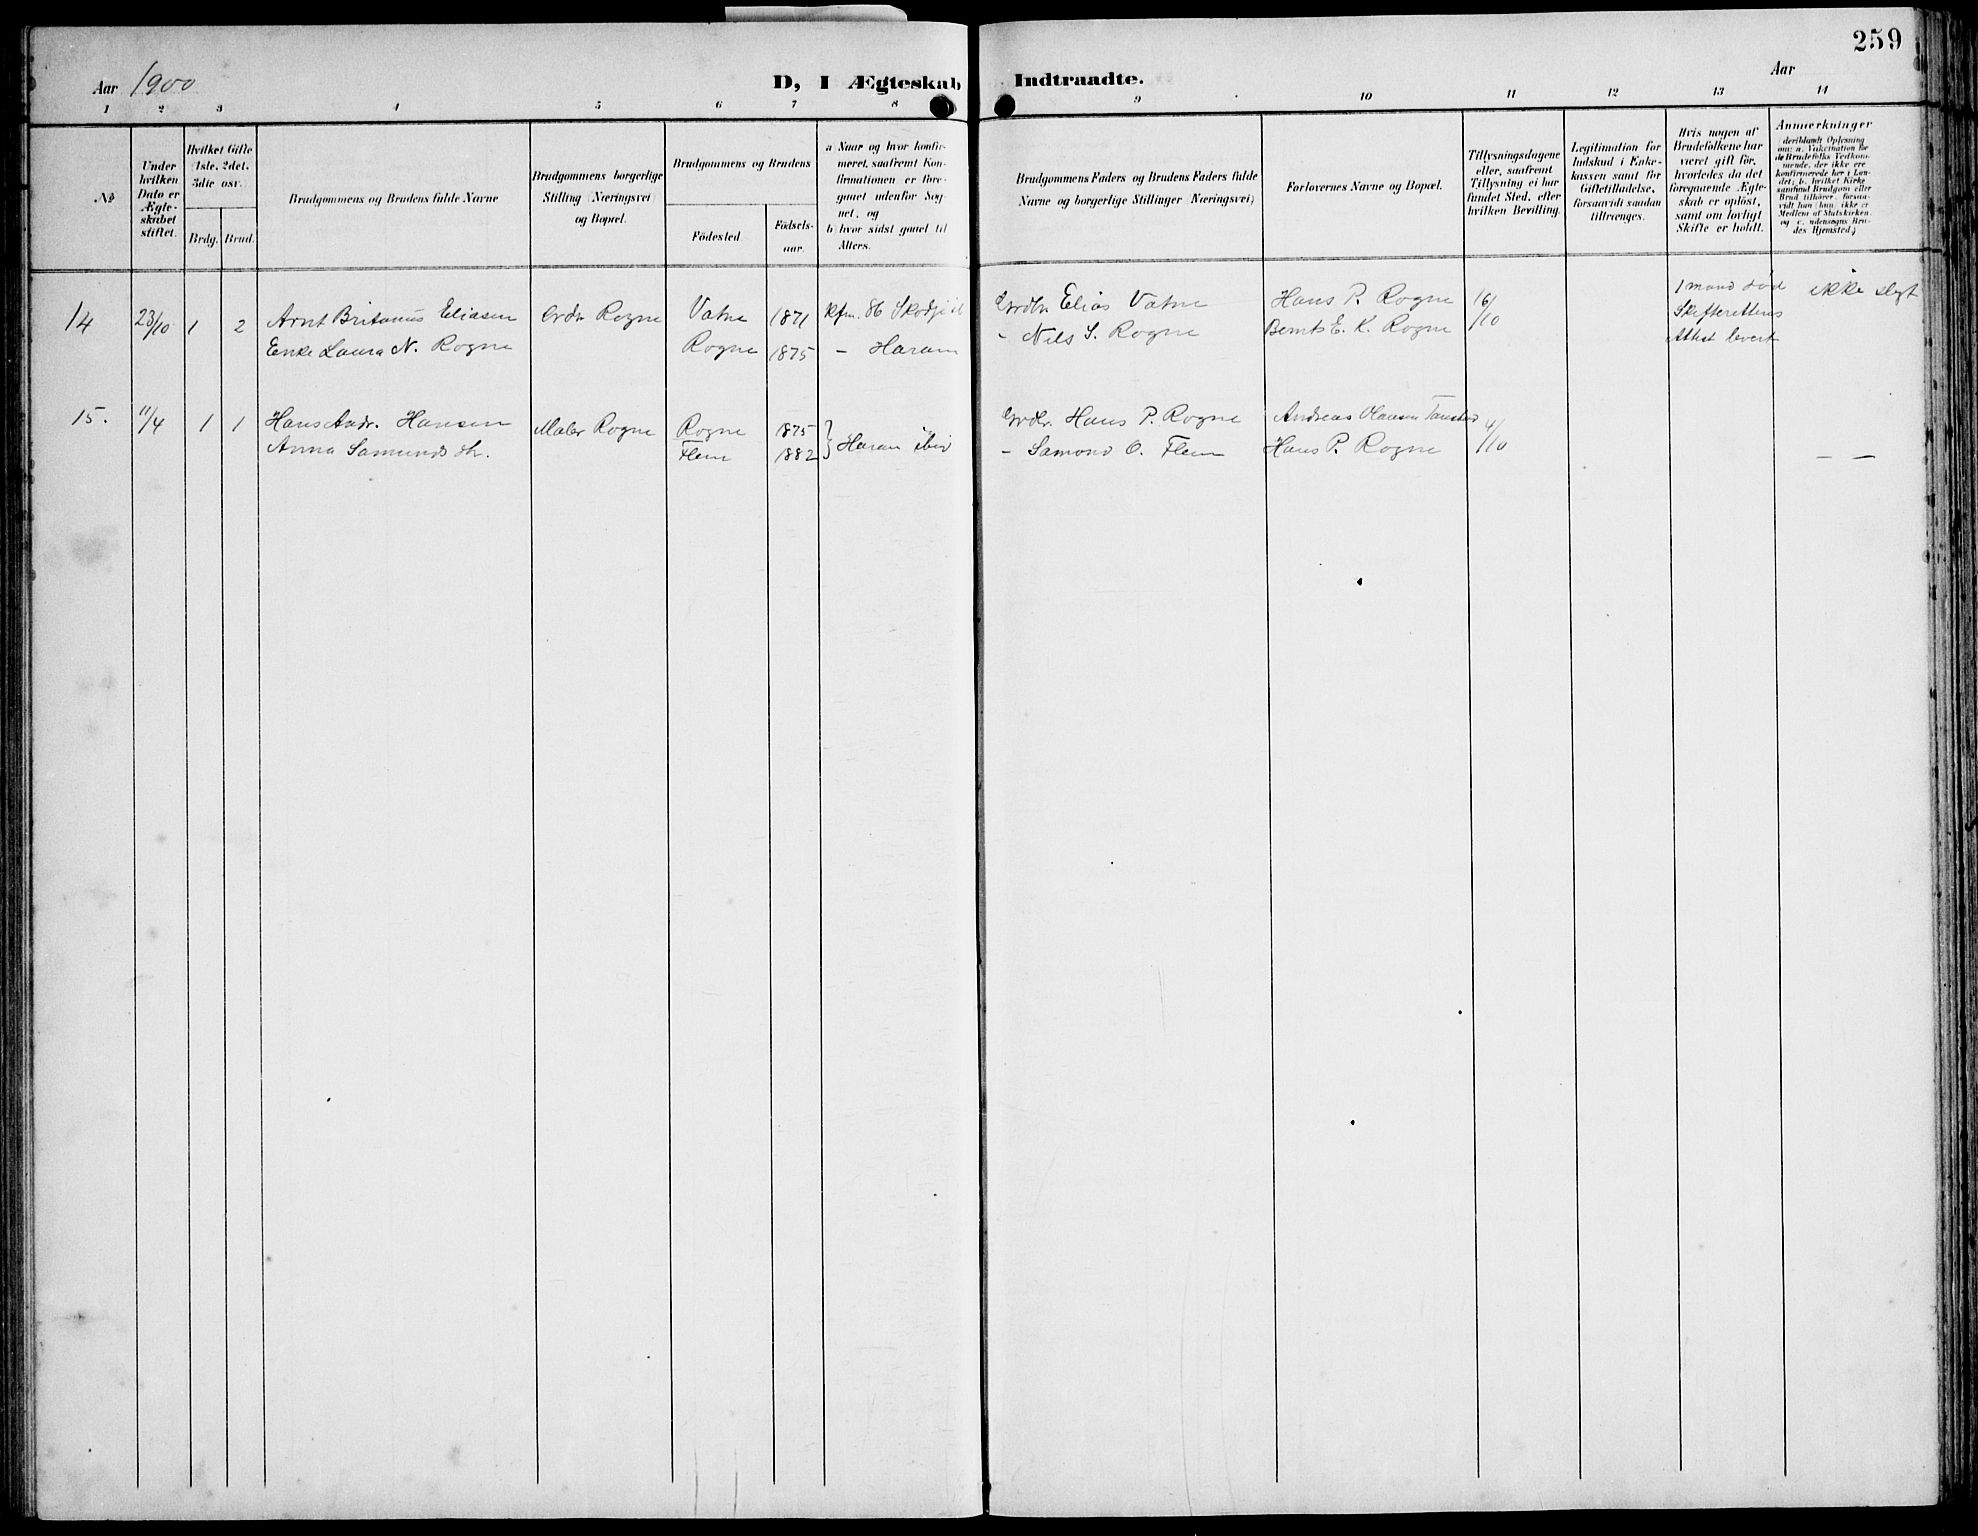 259
Aar 1900
D, I Ægteskab Indtraadte.
Aar
1 2 3 4 5 6 7 8 9 10 11 12 13 14
No
Under hvilken Dato er Ægteskabet stiftet.
Hvilket Gifte (1ste, 2det, 3die osv.
Brdg. Brud.
Brudgommens og Brudens fulde Navne
Brudgommens borgerlige Stilling (Næringsvei) og Bopæl.
Brudgommens og Brudens
Födested.
Födselsaar.
a Naar og hvor konfirmeret, saafremt Konfirmationen er foregaaet udenfor Sognet, og
b) hvor sidst gaaet til Alters.
Brudgommens Faders og Brudens Faders fulde Navne og borgerlige Stillinger (Næringsvei)
Forlovernes Navne og Bopæl.
Tillysningsdagene eller, saafremt Tillysning ei har fundet Sted, efter hvilken Bevilling.
Legitimation for Indskud i Enkekassen samt for Giftetilladelse, forsaavidt saadan tiltrænges.
Hvis nogen af Brudefolkene har været gift för, hvorledes da det foregaaende Ægteskab er oplöst, samt om lovligt Skifte er holdt.
Anmærkninger
(deriblandt Oplysning om: a. Vakcination for de Brudefolks Vedkommende, der ikke ere konfirmerede her i Landet; b. hvilket Kirkesamfund Brudgom eller Brud tilhörer, forsaavidt han (hun) ikke er Medlem af Statskirken, og c. udensogns Brudes Hjemsted.)
14 23/10 1 2 Arnt Britanus Eliasen Grdr Rogne Vatne 1871 Kfm. 86 Skodje Grdbr Elias Vatne Hans P. Rogne 16/10 1 mand död ikke slegt
Enke Laura N. Rogne Rogne 1875 – Haram – Nils S. Rogne Bernts E. K. Rogne Skifterettens
Attest levert
15. 11/4 1 1 Hans Andr. Hansen Maler Rogne Rogne 1875 } Haram ibid Grdbr. Hans P. Rogne Andreas Olausen 4/10
Anna Samunds dtr. Flem 1882 – Samond O. Flem Hans P. Rogne – –